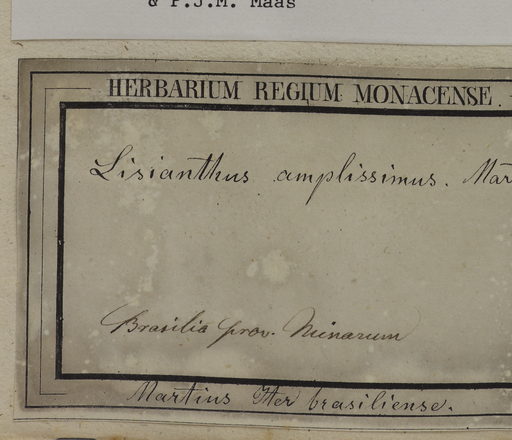 & P.J.M. Maas
HERBARIUM REGIUM MONACENSE.
Lisianthus amplissimus. Mar
Brasilia prov. Minarum
Martius Iter brasiliense.